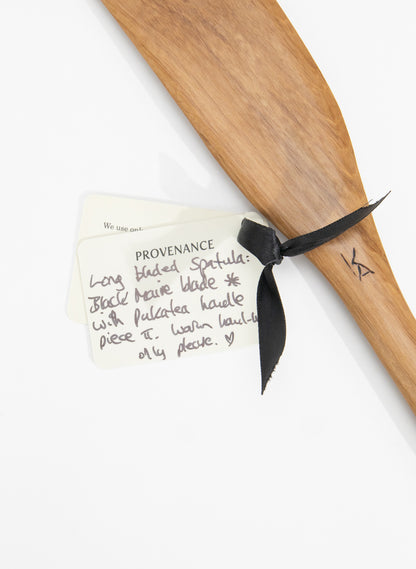 We use onl
PROVENANCE
Long bladed Spatula:
Black Maire blade *
with Pukatea handle
piece II. Warm hand-w
only please. ♡
KA